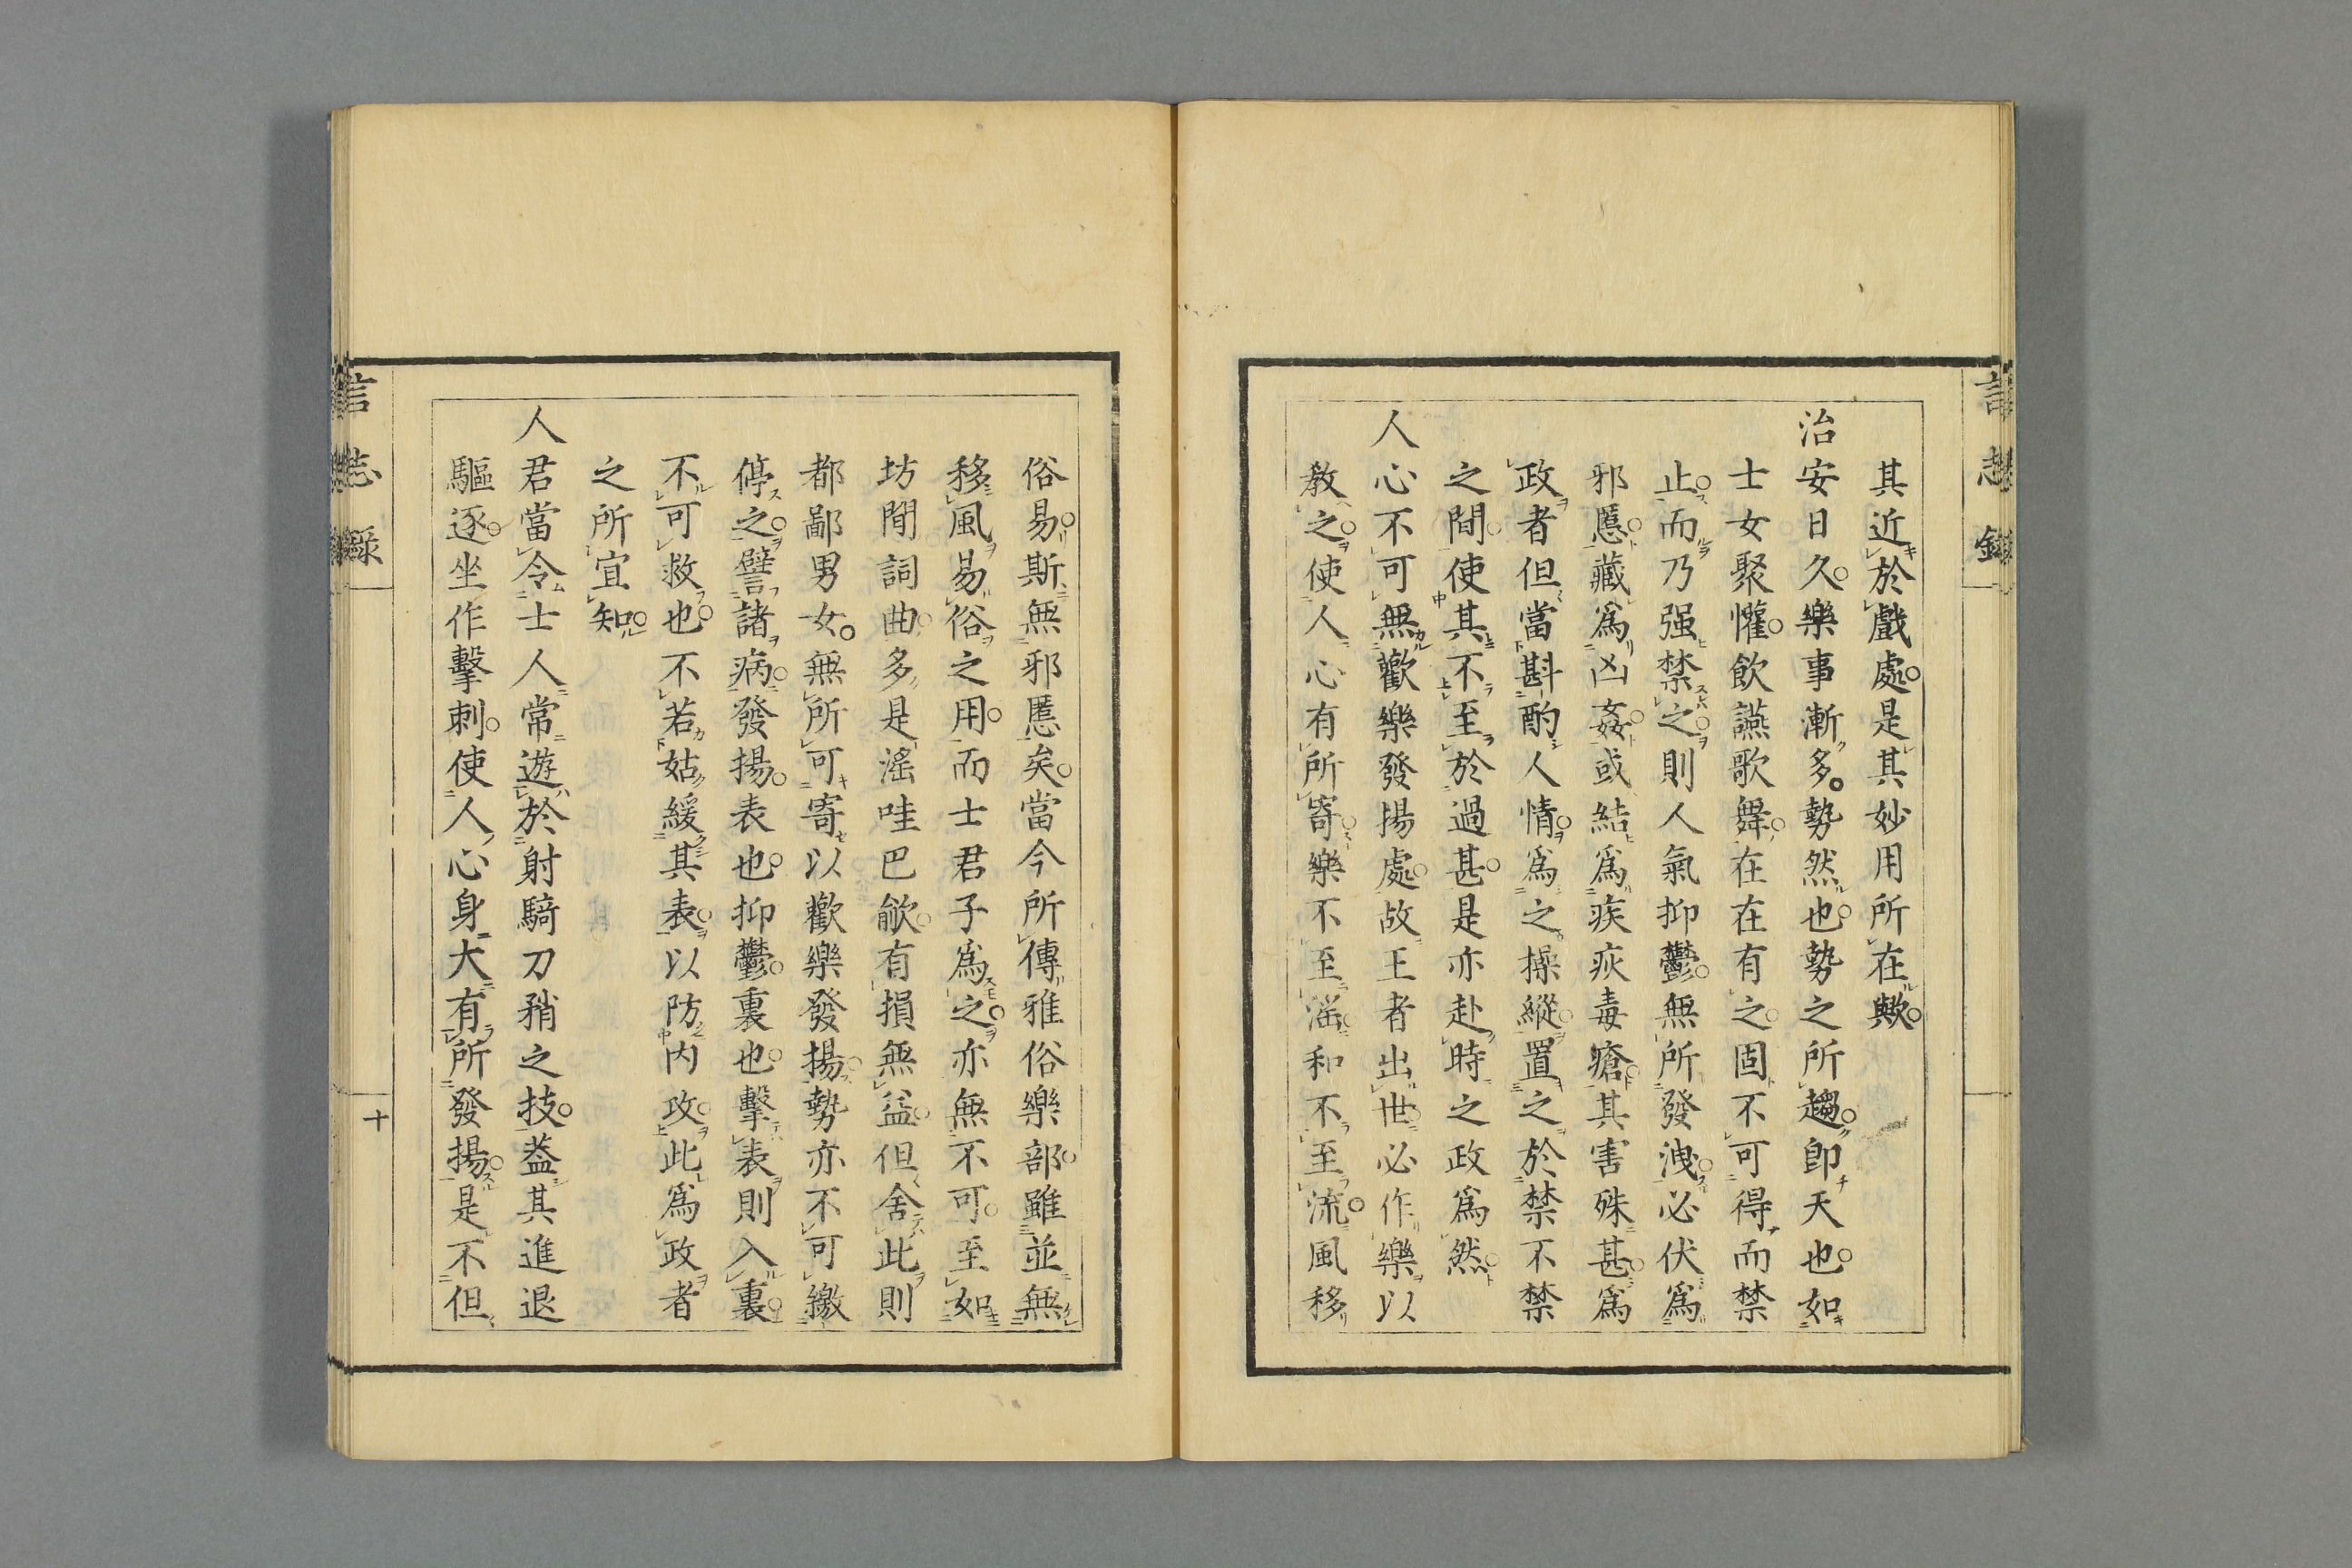 言志錄
其近於戲處是其妙用所在歟
治安日久樂事漸多勢然也勢之所趨卽天也如
士女聚懽飲讌歌舞在在有之固不可得而禁
止而乃强禁之則人氣抑鬱無所發洩必伏爲
邪慝藏爲凶姦或結爲疾疢毒瘡其害殊甚爲
政者但當斟酌人情爲之操縱置之於禁不禁
之間使其不至於過甚是亦赴時之政爲然
人心不可無歡樂發揚處故王者出世必作樂以
教之使人心有所寄樂不至滛和不至流風移
俗易斯無邪慝矣當今所傳雅俗樂部雖並無
移風易俗之用而士君子爲之亦無不可至如
坊間詞曲多是滛哇巴歈有損無益但舍此則
都鄙男女無所可寄以歡樂發揚勢亦不可繳
停之譬諸病發揚表也抑鬱裏也擊表則入裏
不可救也不若姑緩其表以防內攻此爲政者
之所宜知
人君當令士人常遊於射騎刀矟之技葢其進退
驅逐坐作擊刺使人心身大有所發揚是不但
言志錄
十